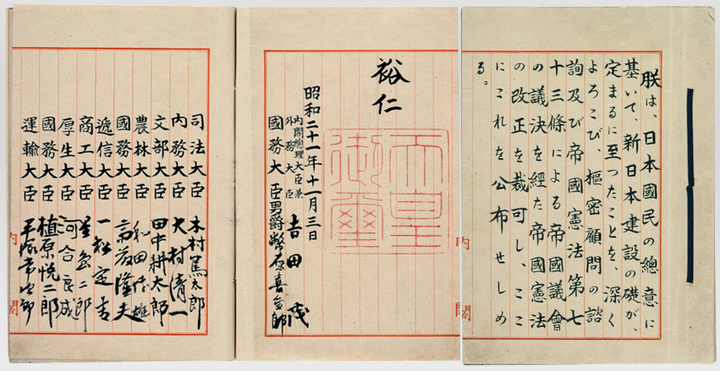 朕は、日本國民の總意に
基いて、新日本建設の礎が、
定まるに至つたことを、深く
よろこび、樞密顧問の諮
詢及び帝國憲法第七
十三條による帝國議會
の議決を経た帝國憲法
の改正を裁可し、ここ
にこれを公布せしめ
る。
内閣
裕仁
天皇
御璽
昭和二十一年十一月三日
内閣總理大臣兼
外務大臣 吉田茂
國務大臣 男爵幣原喜重郎
内閣
司法大臣 木村篤太郎
内務大臣 大村清一
文部大臣 田中耕太郎
農林大臣 和田博雄
國務大臣 斎藤隆夫
遞信大臣 一松定吉
商工大臣 星島二郎
厚生大臣 河合良成
國務大臣 植原悦二郎
運輸大臣 平塚常次郎